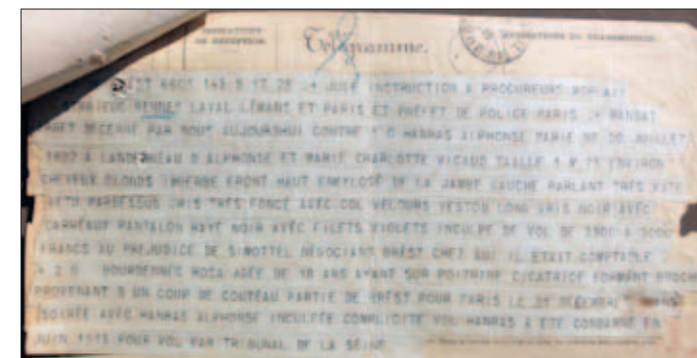 INDICATIONS DE RÉCEPTION. Télégramme. INDICATIONS DE TRANSMISSION.
BREST 6601 143 S 17 25 = JUGE INSTRUCTION A PROCUREURS REPLAZE
RENNES LAVAL LEMANS ET PARIS ET PREFET DE POLICE PARIS = MANDAT
ARRET DECERNE PAR NOUS AUJOURDHUI CONTRE 1 O HANRAS ALPHONSE MARIE NE 00 JUILLET
1892 A LANDERNEAU D ALPHONSE ET MARIE CHARLOTTE VICAUD TAILLE 1 M 71 ENVIRON
CHEVEUX BLONDS IMBERBE FRONT HAUT ENKYLOSE DE LA JAMBE GAUCHE PARLANT TRÈS VITE
VETU PARDESSUS GRIS TRÈS FONCÉ AVEC COL VELOURS VESTON LONG GRIS NOIR AVÈC
CARREAUX PANTALON RAYÉ NOIR AVÈC FILETS VIOLETS INCULPE DE VOL DE A
FRANCS AU PREJUDICE DE SIMOTTEL NÉGOCIANT BRÈST CHEZ QUI IL ÉTAIT COMPTABLE
+ 2 O BOURDENNEC ROSA AGÉE DE 18 ANS AYANT SUR POITRINE CICATRICE FORMANT BROCHE
PROVENANT D UN COUP DE COUTÉAU PARTIE DE BRÈST POUR PARIS LE 31 DÈCEMBRE DANS
SOIRÉE AVÈC HANRAS ALPHONSE INCULPÉE COMPLICITÉ VOL HANRAS A ÉTÉ CONDAMNÉ EN
JUIN 1915 POUR VOL PAR TRIBUNAL DE LA SEINE